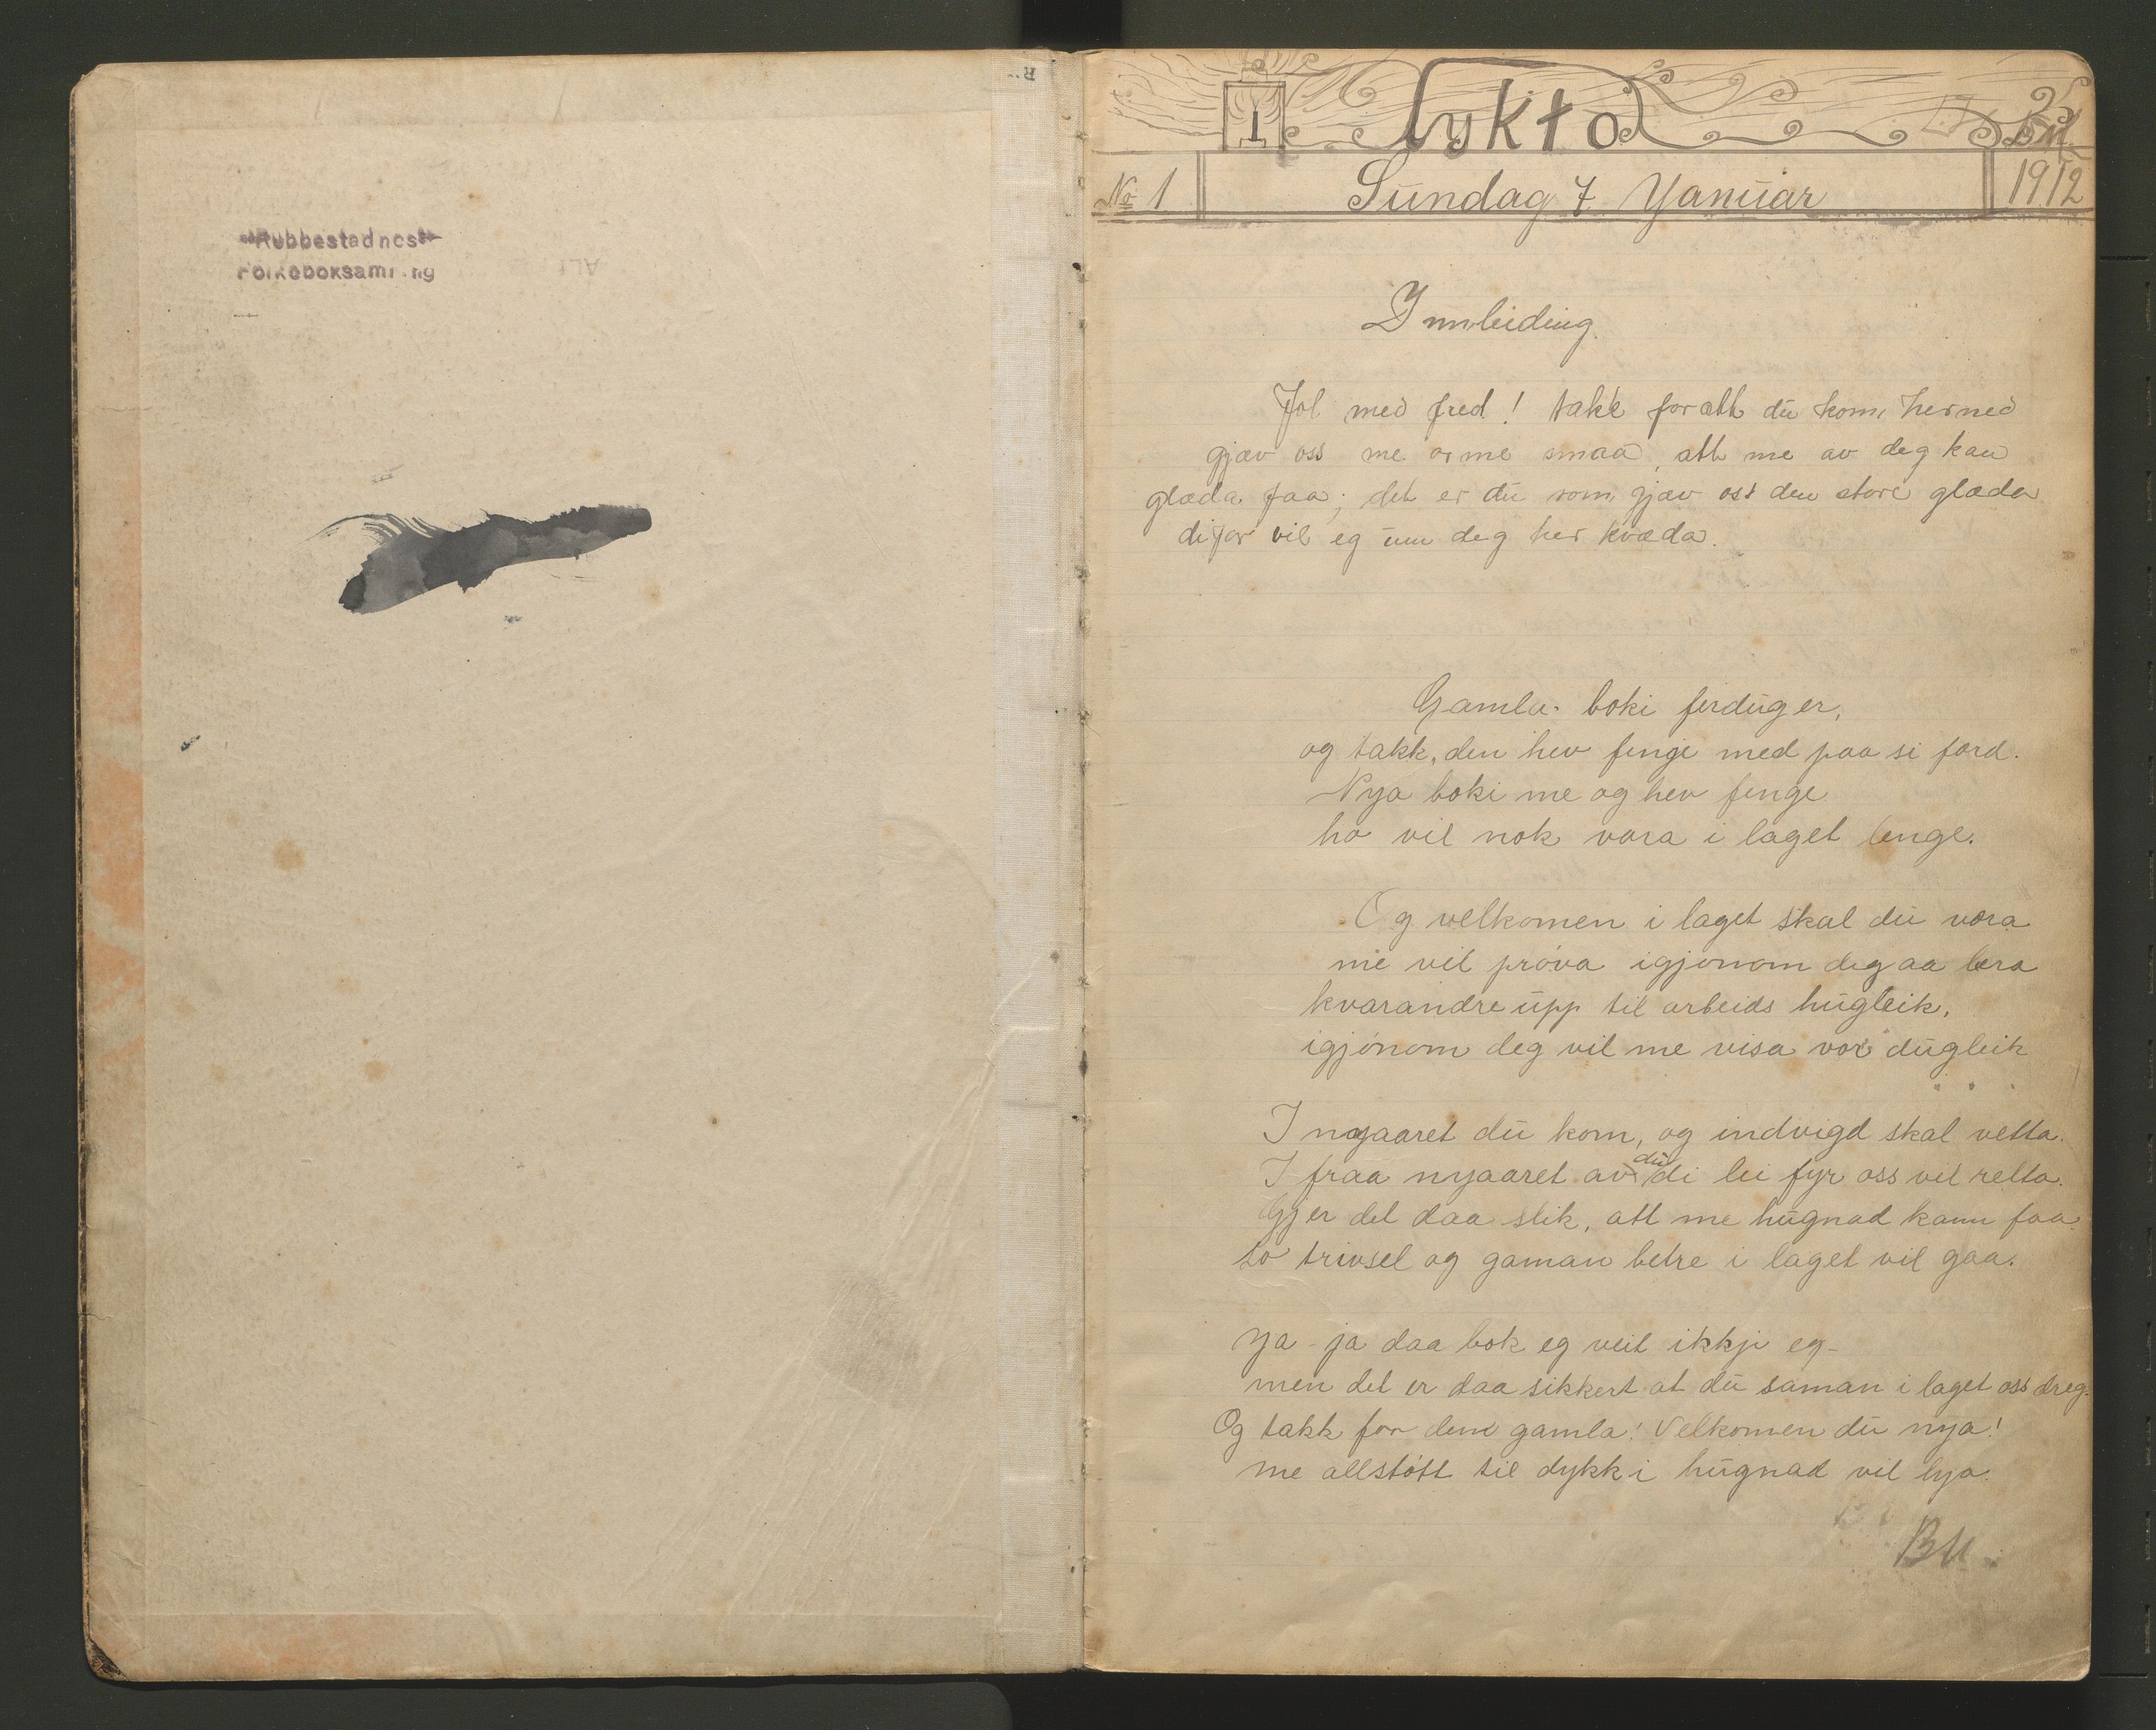 Rubbestadnes
Folkeboksamling
Lykto
No 1
Sundag 7 Yanuar
1912
Innleiding.
Jol med fred! takk foratt du kom herned
gjæv oss me arme smaa, att me av deg kan
glæda faa; det er du som gjæv oss den store glæda
difor vil eg um deg her kvæda.
Gamla boki ferdug er,
og takk, den hev fenge med paa si ferd.
Nya boki me og hev fenge
ho vil nok vara i laget lenge.
Og velkomen i laget skal du vera
me vil prøva igjønom deg aa læra
kvarandre upp til arbeids hugleik,
igjønom deg vil me visa vor dugleik
I nyaaret du kom, og indvigd skal vetta.
I fraa nyaaret av du di lei fyr oss vil retta.
Gjer det daa slik, att me hugnad kann faa.
so trivsel og gaman betre i laget vil gaa.
Ya - ja daa bok eg veit ikkje eg -
men det er daa sikkert at du saman i laget oss dreg.
Og takk for den gamla! Velkomen du nya!
me allstøtt til dykk i hugnad vil lya.
BM.